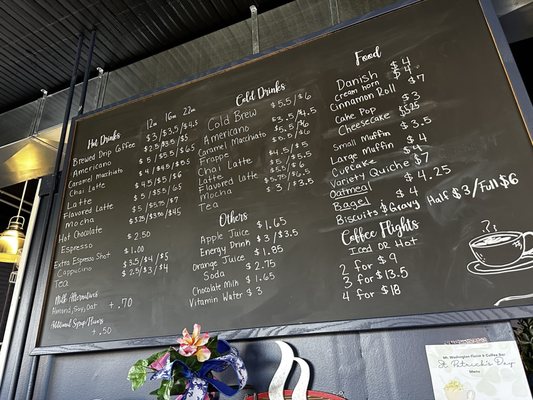 Hot Drinks
12oz 16oz 22oz
Brewed Drip Coffee $3/$3.5/$4.5
Americano
Caramel Macchiato
Chai Latte
Latte
Flavored Latte
Mocha
Hot Chocolate
Espresso $2.50
Extra Espresso Shot $1.00
Cappuccino $3.5/$4/$5
Tea $2.5/$3/$4
Milk Alternatives
Almond, Soy, Oat + .70
Additional Syrup Flavors
+ .50
Cold Drinks
Cold Brew $5.5/$6
Americano $3.5/$4.5
Caramel Macchiato
Frappe
Chai Latte
Latte
Flavored Latte
Mocha
Tea $3/$3.5
Others
Apple Juice $1.65
Energy Drink $3/$3.5
Orange Juice $1.85
Soda $2.75
Chocolate Milk $1.65
Vitamin Water $3
Food
Danish $4
Cream Horn $4
Cinnamon Roll $7
Cake Pop $3
Cheesecake $5.25
Small Muffin $3.5
Large Muffin $4
Cupcake $4
Variety Quiche $7
Oatmeal $4.25
Bagel $4
Biscuits & Gravy Half $3/Full $6
Coffee Flights
Iced or Hot
2 for $9
3 for $13.5
4 for $18
Mt. Washington Florist & Coffee Bar
St Patrick's Day
Menu